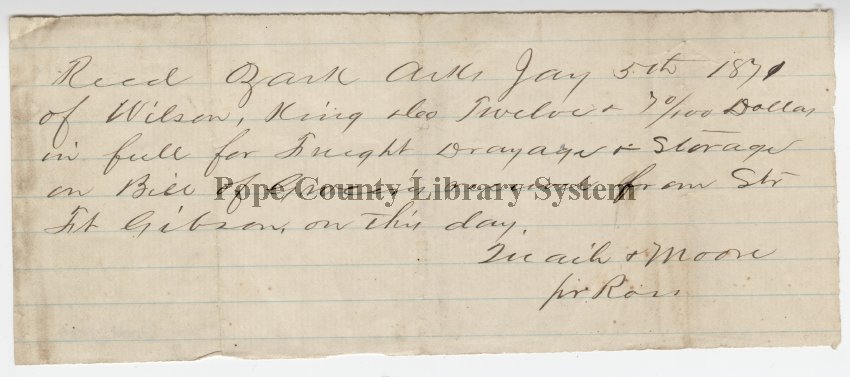 Recd Ozark Arks Jay 5th 1871
of Wilson, King & Co Twelve & 70/100 Dollars
in full for Freight Drayage & Storage
on Bill of from Str
Pope County Library System
Ft Gibson, on this day.
& Moore
pr Ross